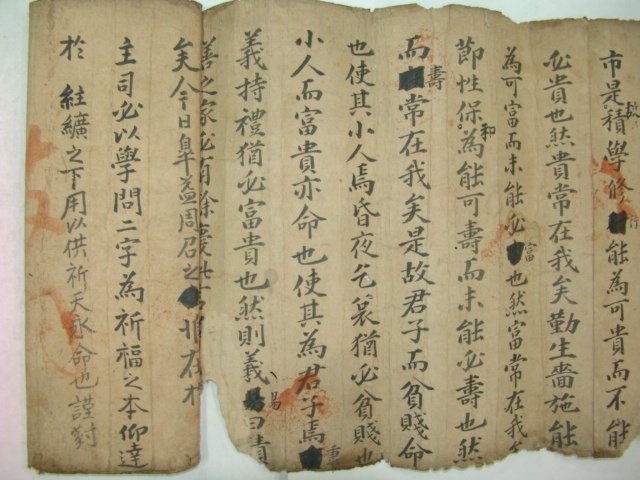 市是故積學修行能為可貴而不能
必貴也然貴常在我矣勤生嗇施能
為可富而未能必富也然富常在我
節性保和為能可壽而未能必壽也然
而壽常在我矣是故君子而貧賤命
也使其小人焉昏夜乞裳猶必貧賤也
小人而富貴亦命也使其為君子焉重
義持禮猶必富貴也然則義易曰積
善之家必有餘慶 在
矣今日皐益周召之 堆在
主司必以學問二字為祈福之本仰達
於 黈纊之下用以供祈天永命也謹對